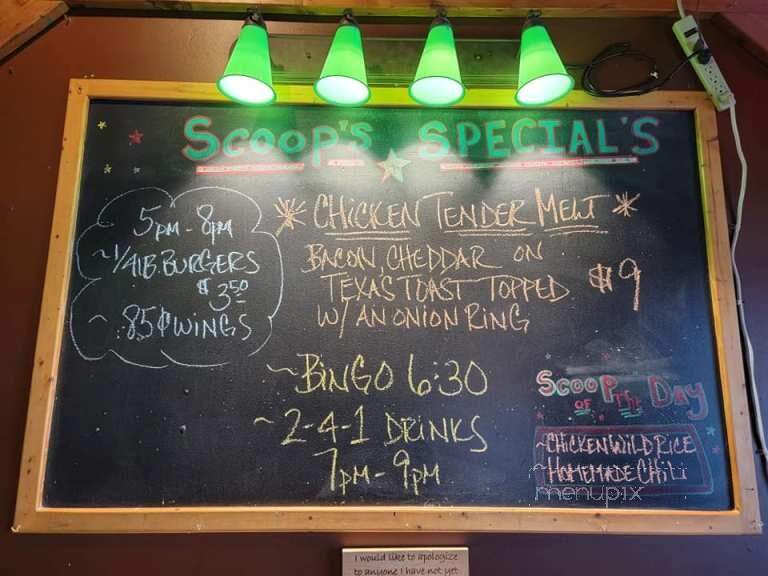 Scoop's SPECIAL'S
5pm - 8pm
~1/4lb. BURGERS
$3.50
~ .85¢ WINGS
* CHICKEN TENDER MELT *
BACON, CHEDDAR ON
TEXAS TOAST TOPPED
W/ AN ONION RING
$9
~BINGO 6:30
~2-4-1 DRINKS
7pm - 9pm
Scoop of the Day
~CHICKEN WILD RICE
~HOMEMADE CHILI
menupix
I would like to apologize
to anyone I have not yet